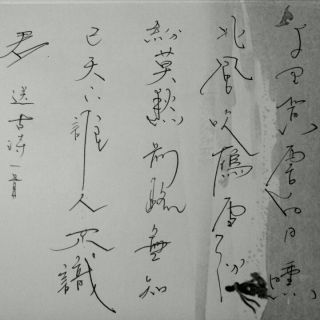 千里黄雲白日曛
北風吹雁雪纷
纷莫愁前路無知
己天下誰人不識
君
送古诗一首